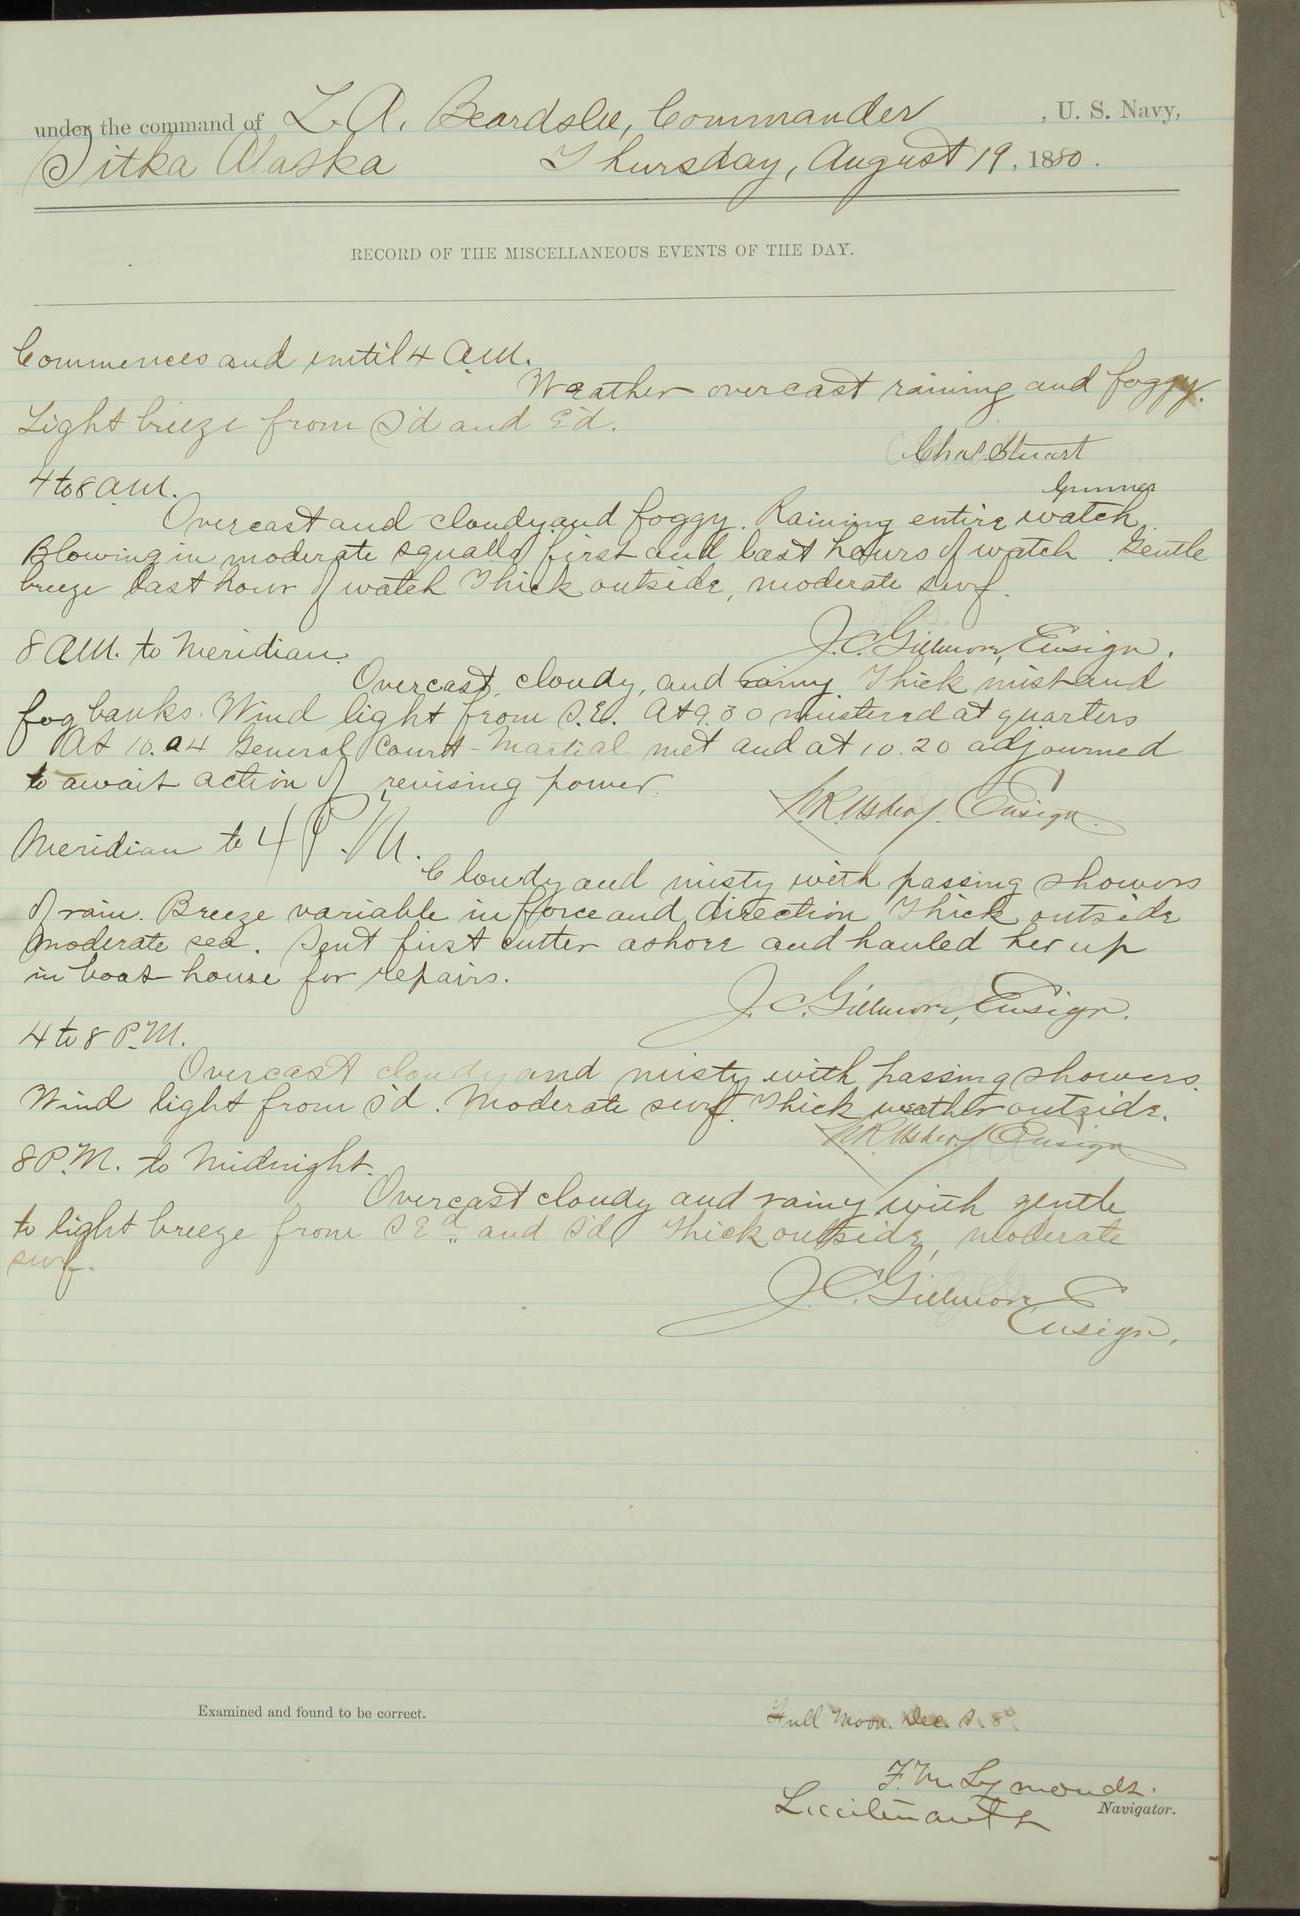 under the command of L. A. Beardslee, Commander, U. S. Navy,
Sitka Alaska Thursday, August 19, 1880.
RECORD OF THE MISCELLANEOUS EVENTS OF THE DAY.
Commences and until 4 A.M.
Weather overcast raining and foggy.
Light breeze from S'd and E'd.
Chas Stuart
Gunner
4 to 8 A.M.
Overcast and cloudy and foggy. Raining entire watch.
Blowing in moderate squalls first and last hours of watch. Gentle
breeze last hour of watch Thick outside, moderate surf.
J. C. Gillmore, Ensign.
8 A.M. to Meridian.
Overcast, cloudy, and rainy. Thick mist and
fog banks. Wind light from S.E. At 9.30 mustered at quarters
At 10.04 General Court-Martial met and at 10.20 adjourned
to await action of revising power.
N.R. Usher Ensign.
Meridian to 4 P.M.
Cloudy and misty with passing showers
of rain. Breeze variable in force and direction Thick outside
moderate sea. Sent first cutter ashore and hauled her up
in boat house for repairs.
J. C. Gillmore, Ensign.
4 to 8 P.M.
Overcast cloudy and misty with passing showers.
Wind light from S'd. Moderate surf. Thick weather outside.
N.R. Usher Ensign
8 P.M. to Midnight.
Overcast cloudy and rainy with gentle
to light breeze from SEd and S'd Thick outside, moderate
surf.
J. C. Gillmore
Ensign.
Examined and found to be correct.
Full Moon. Dec. S. 8°
F. M. Symonds.
Lieutenant & Navigator.